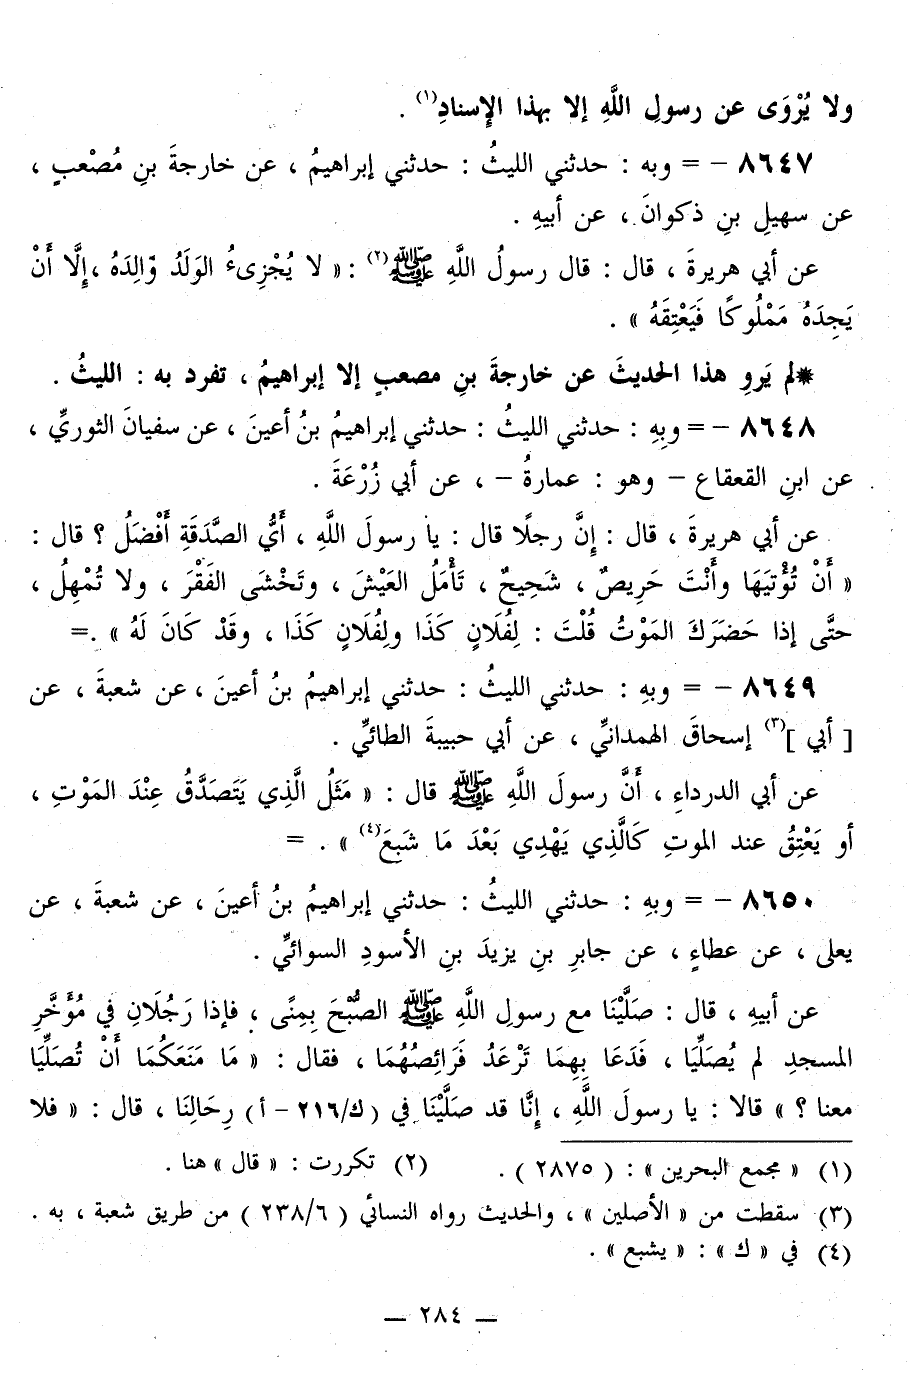 ولا يُرْوَى عن رسولِ اللَّهِ إلا بهذا الإِسنادِ(١) .
٨٦٤٧ – = وبه : حدثني الليثُ : حدثني إبراهيمُ ، عن خارجةَ بنِ مُصْعَبٍ ،
عن سهيلِ بنِ ذكوانَ ، عن أبيهِ .
عن أبي هريرةَ ، قال : قال رسولُ اللَّهِ ﷺ(٢) : « لا يُجْزِىءُ الوَلَدُ وّالِدَهُ ،إلَّا أَنْ
يَجِدَهُ مَمْلُوكًا فَيَعْتِقَهُ » .
*لم يَروِ هذا الحديثَ عن خارجةَ بنِ مصعبٍ إلا إبراهيمُ ، تفرد به : الليثُ .
٨٦٤٨ – = وبِهِ : حدثني الليثُ : حدثني إبراهيمُ بنُ أعينَ ، عن سفيانَ الثوريِّ ،
عن ابنِ القعقاع – وهو : عمارةُ – ، عن أبي زُرْعَةَ .
عن أبي هريرةَ ، قال : إِنَّ رجلًا قال : يا رسولَ اللَّهِ ، أَيُّ الصَّدَقَةِ أَفْضَلُ ؟ قال :
« أَنْ تُؤْتيَهَا وأَنْتَ حَرِيصٌ ، شَحِيحٌ ، تَأْمَلُ العَيْشَ ، وتَخْشَى الفَقْرَ ، ولا تُمْهِلُ ،
حتَّى إذا حَضَرَكَ المَوْتُ قُلْتَ : لِفُلَانٍ كَذَا ولِفُلَانٍ كَذَا ، وقَدْ كَانَ لَهُ » .=
٨٦٤٩ – = وبهِ : حدثني الليثُ : حدثني إبراهيمُ بنُ أعينَ ، عن شعبةَ ، عن
[ أبي ](٣) إسحاقَ الهمدانيِّ ، عن أبي حبيبةَ الطائيِّ .
عن أبي الدرداءِ ، أَنَّ رسولَ اللَّهِ ﷺ قال : « مَثَلُ الَّذِي يَتَصَدَّقُ عِنْدَ المَوْتِ ،
أو يَعْتِقُ عند الموتِ كَالَّذِي يَهْدِي بَعْدَ مَا شَبِعَ(٤) » . =
٨٦٥٠ – = وبهِ : حدثني الليثُ : حدثني إبراهيمُ بنُ أعينَ ، عن شعبةَ ، عن
يعلى ، عن عطاءٍ ، عن جابرِ بنِ يزيدَ بنِ الأسودِ السوائيِّ .
عن أبيهِ ، قال : صَلَّيْنَا مع رسولِ اللَّهِ ﷺ الصُّبْحَ بِمِنًى ، فإذا رَجُلَانِ في مُؤَخَّرِ
المسجدِ لم يُصَلِّيَا ، فَدَعَا بِهِمَا تَرْعَدُ فَرَائِصُهُمَا ، فقال : « مَا مَنَعَكُمَا أَنْ تُصَلِّيَا
معنا ؟ » قالا : يا رسولَ اللَّهِ ، إِنَّا قد صَلَّيْنَا في ( ك/٢١٦ – أ ) رِحَالِنَا ، قال : « فلا
(١) « مجمع البحرين » : ( ٢٨٧٥ ) .
(٢) تكررت : « قال » هنا .
(٣) سقطت من « الأصلين » ، والحديث رواه النسائي ( ٢٣٨/٦ ) من طريق شعبة ، به .
(٤) في « ك » : « يشبع » .
— ٢٨٤ —